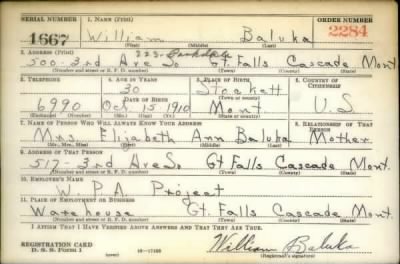 SERIAL NUMBER 1. NAME (Print) ORDER NUMBER
1667 William Baluka 2284
(First) (Middle) (Last)
2. ADDRESS (Print) 223- Parkdale
500-3rd Ave So Gt. Falls Cascade Mont.
(Number and street or R. F. D. number) (Town) (County) (State)
3. TELEPHONE 4. AGE IN YEARS 5. PLACE OF BIRTH 6. COUNTRY OF CITIZENSHIP
30 Stockett
DATE OF BIRTH (Town or county)
6990 Oct. 15 1910 Mont. U.S
(Exchange) (Number) (Mo.) (Day) (Yr.) (State or country)
7. NAME OF PERSON WHO WILL ALWAYS KNOW YOUR ADDRESS 8. RELATIONSHIP OF THAT PERSON
Mrs. Elizabeth Ann Baluka Mother
(Mr., Mrs., Miss) (First) (Middle) (Last)
9. ADDRESS OF THAT PERSON
517-3rd Ave So. Gt Falls Cascade Mont.
(Number and street or R. F. D. number) (Town) (County) (State)
10. EMPLOYER'S NAME
W.P.A. Project
11. PLACE OF EMPLOYMENT OR BUSINESS
Warehouse Gt. Falls Cascade Mont.
(Number and street or R. F. D. number) (Town) (County) (State)
I AFFIRM THAT I HAVE VERIFIED ABOVE ANSWERS AND THAT THEY ARE TRUE.
REGISTRATION CARD
D. S. S. FORM 1 16-17105 William Baluka
(Registrant's signature)